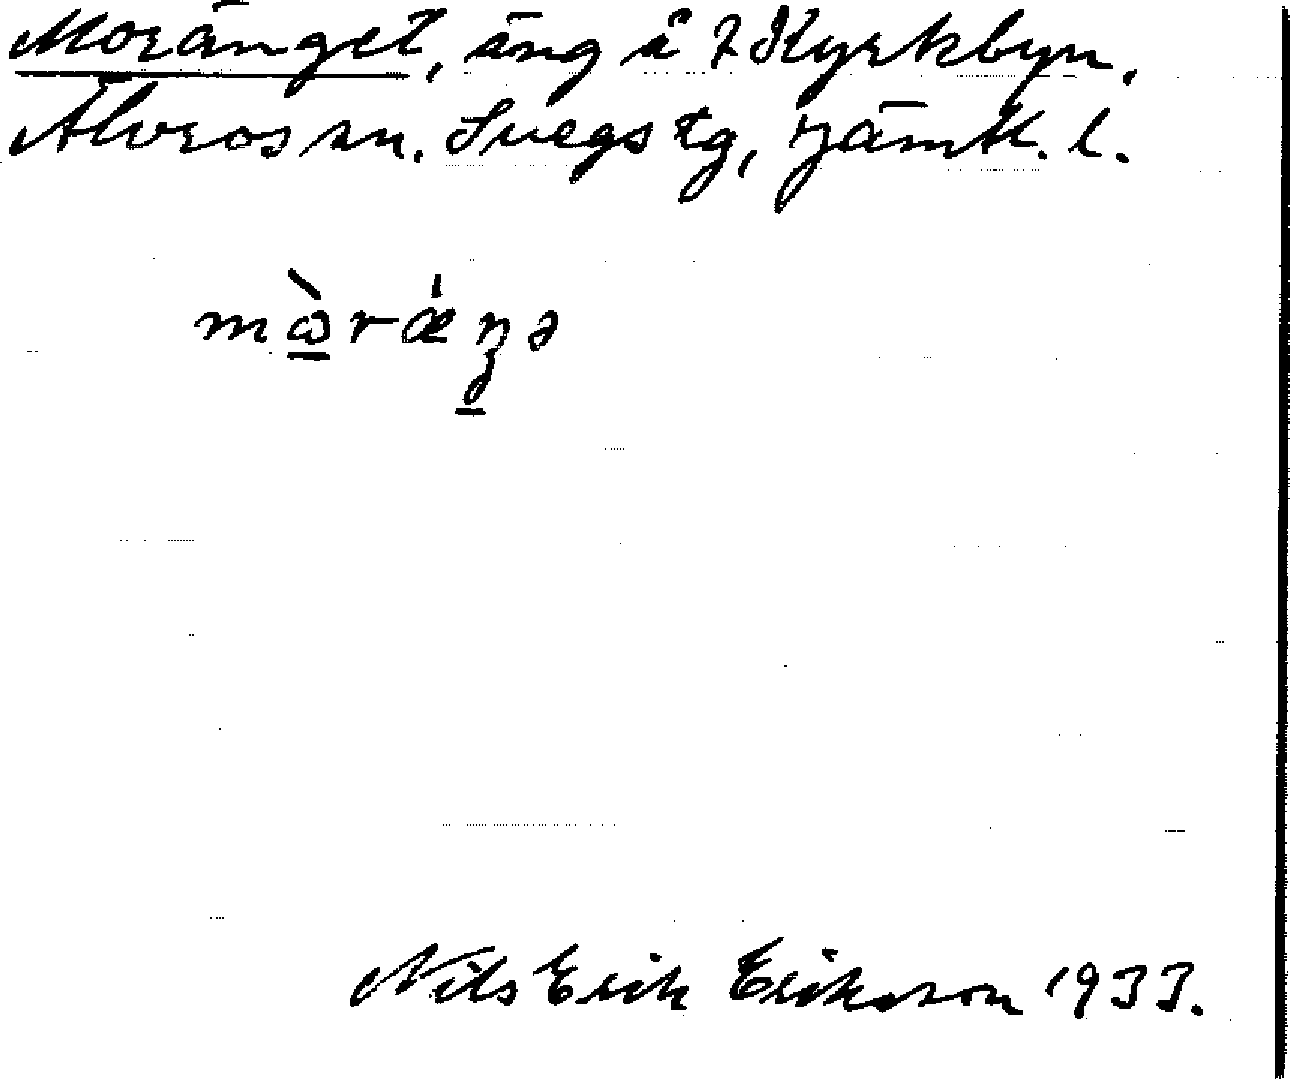 Moränget, äng i 2 Kyrkbyn,
Älvros sn. Svegs tg, Jämtl. l.
mɷ̀rǽŋə
Nils Erik Erikson 1933.